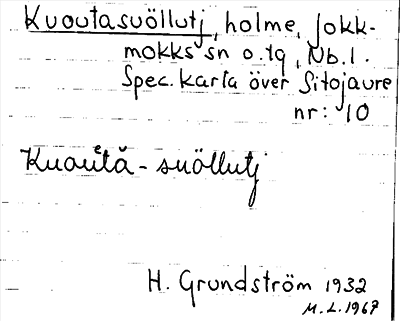 Kuoutasuöllutj, holme, Jokk-
mokks sn o. tg, Nb. l.
Spec. karta över Sitojaure
nr: 10
Kuou͕ětå - suöllutj
H. Grundström 1932
M. L. 1967